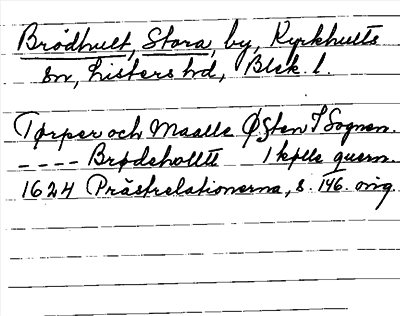 Brødhult, Stora, by, Kyrkhults
sn, Listers hd, Blek. l.
Tørper och Maalle Østen I Sognen.
---- Brødehollte 1 kølle quern.
1624 Prästrelationerna, s. 146. orig.